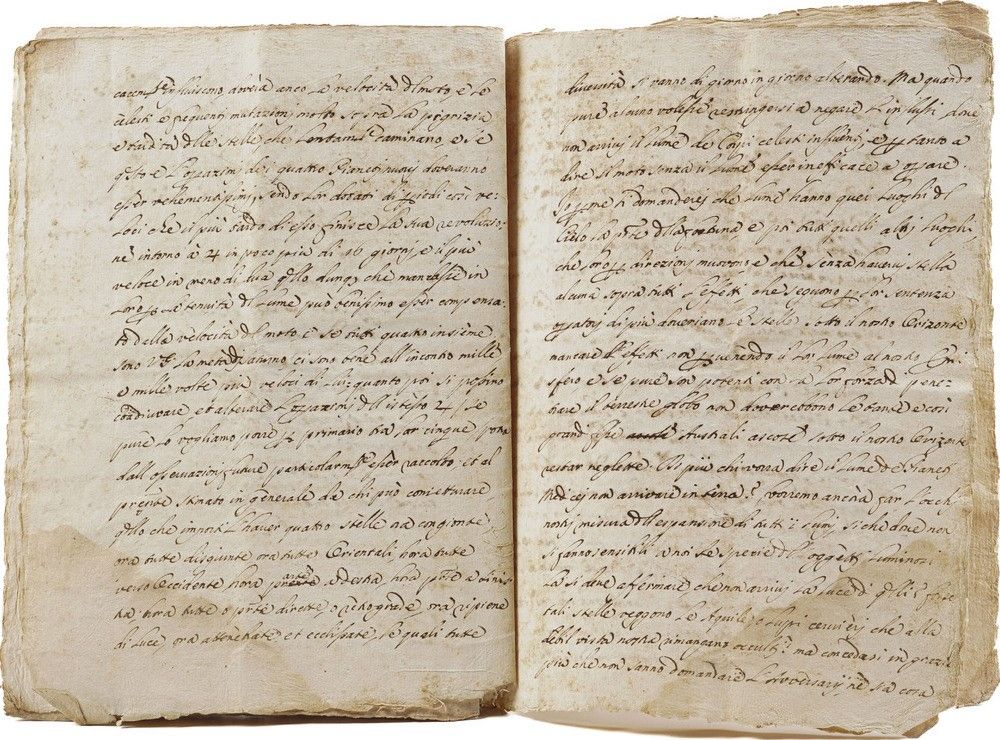 influiscono doverà anco la velocità del moto, e le
celesti e frequenti mutazioni molto sopra la pigrizia
e tardità delle stelle che lontani caminano, e se
questo è l'operazioni dei quattro Pianeti nuovi doveranno
esser vehementissimi, sendo lor dotati di periodi così ve-
loci che il più tardo di essi finisce la sua revoluzio-
ne intorno a 24 in poco più di 16 giorni e il più
veloce in meno di dua quello dunque che mancasse in
loro per la tenuità di lume può benissimo esser compensa-
to della velocità del moto e se tutti quatto insieme
sono la metà ci sono bene all'incontro mille
e mille volte più veloci di lui; quanto poi si possino
coadiuvare et alterare l'operazioni dell'istesso 24 se
pure lo vogliamo porre primario tra lor cinque potrà
dall'osservazioni future particolarmente esser raccolto et al
presente stimato in generale da chi può conietturare
quello che importi l'haver quattro stelle ora congionte
ora tutte disgiunte ora tutte Orientali, hora tutte
verso Occidente hora parte a destra hora parte a sinis-
tra hora tutte o parte dirette o retrograde ora ripiene
di luce ora attenuate et ecclissate le quali tutte
diversità si vanno di giorno in giorno alterando. Ma quando
pure alcuno volesse restringersi a negare l'influssi dove
non arrivi il lume de Corpi celesti influenti, e pertanto a
dire il moto senza il lume esser inefficace a operare
Io domanderei che lume hanno quei luoghi del
Cielo la parte della fortuna e poi tutti quelli altri luoghi
che sono per direzzioni muovono e che senza havervi stella
alcuna sopra tutti l'effetti che seguono per lor sentenza
operatori di più doveriano le stelle sotto il nostro Orizonte
mancare d'effetti non pervenendo il lor lume al nostro Emi-
sfero e se pure son potenti con la lor forza di pene-
trare il terrestre globo non doverebbono le tante e così
grandi fisse Australi ascose sotto il nostro Orizonte
restar neglette. Di più chi vorrà dire il lume de Pianeti
Medicei non arrivare in terra? Vorremo ancora far l'occhi
nostri misura dell'espansione di tutti i lumi, sì che dove non
si fanno sensibili a noi le spezie dell'oggetti luminosi
là si deve affermare che non arrivi la luce di quelli? forse
tali stelle veggono le Aquile, e lupi cervieri che alla
debil vista nostra rimangano occulte? ma concedasi in grazia
più che non sanno domandare l'Avversarii ne sia cosa